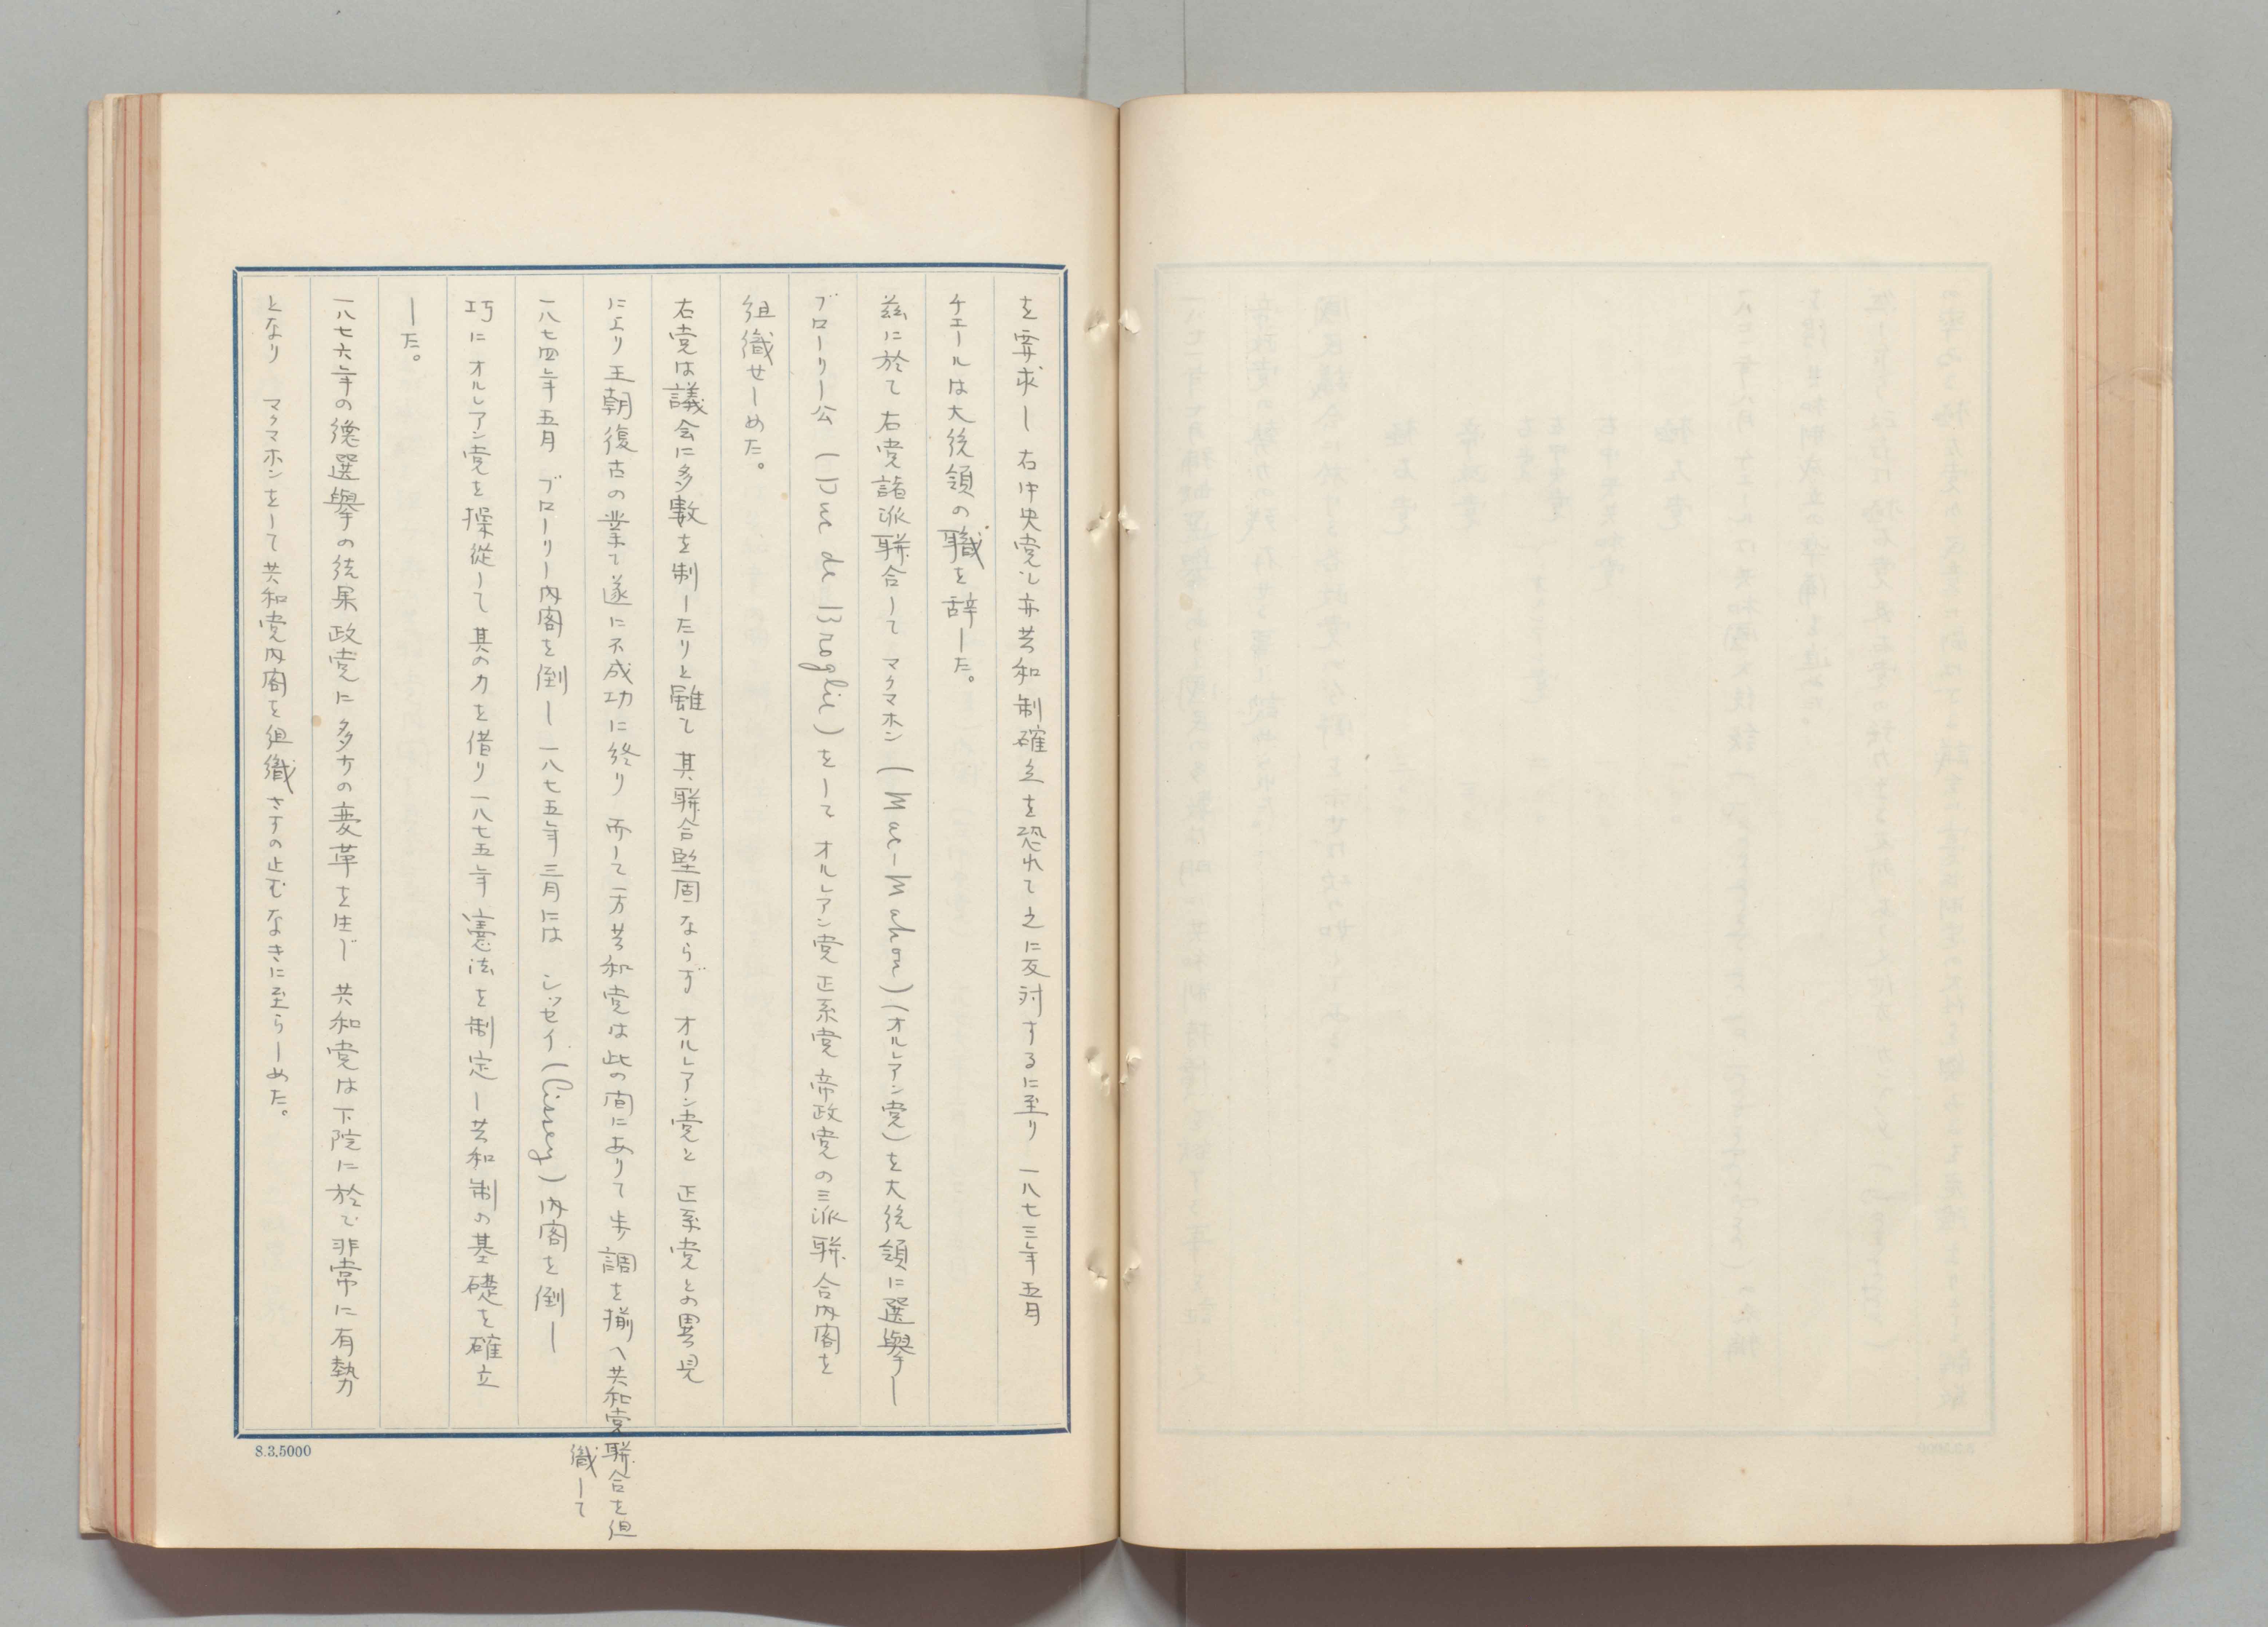 を要求し 右中央党も亦共和制確立を恐れて之に反対するに至り 一八七三年五月
チエールは大統領の職を辞した。
茲に於て右党諸派聯合して マクマホン (Mac-Mahon)(オルレアン党)を大統領に選擧し
ブローリー公 (Duc de Broglie) をして オルレアン党 正系党 帝政党の三派聯合内閣を
組織せしめた。
右党は議会に多數を制したりと雖て 其聯合堅固ならず オルレアン党と 正系党との異見
により王朝復古の業て遂に不成功に終り 而して一方共和党は此の間にありて歩調を揃へ共和党聯合を組
織して
一八七四年五月 ブローリー内閣を倒し 一八七五年三月には シッセイ (Cissey) 内閣を倒し
巧に オルレアン党を操従して 其の力を借り一八七五年憲法を制定し共和制の基礎を確立
した。
一八七六年の總選擧の結果政党に多大の変革を生じ 共和党は下院に於て非常に有勢
となり マクマホンをして共和党内閣を組織さすの止むなきに至らしめた。
8.3.5000